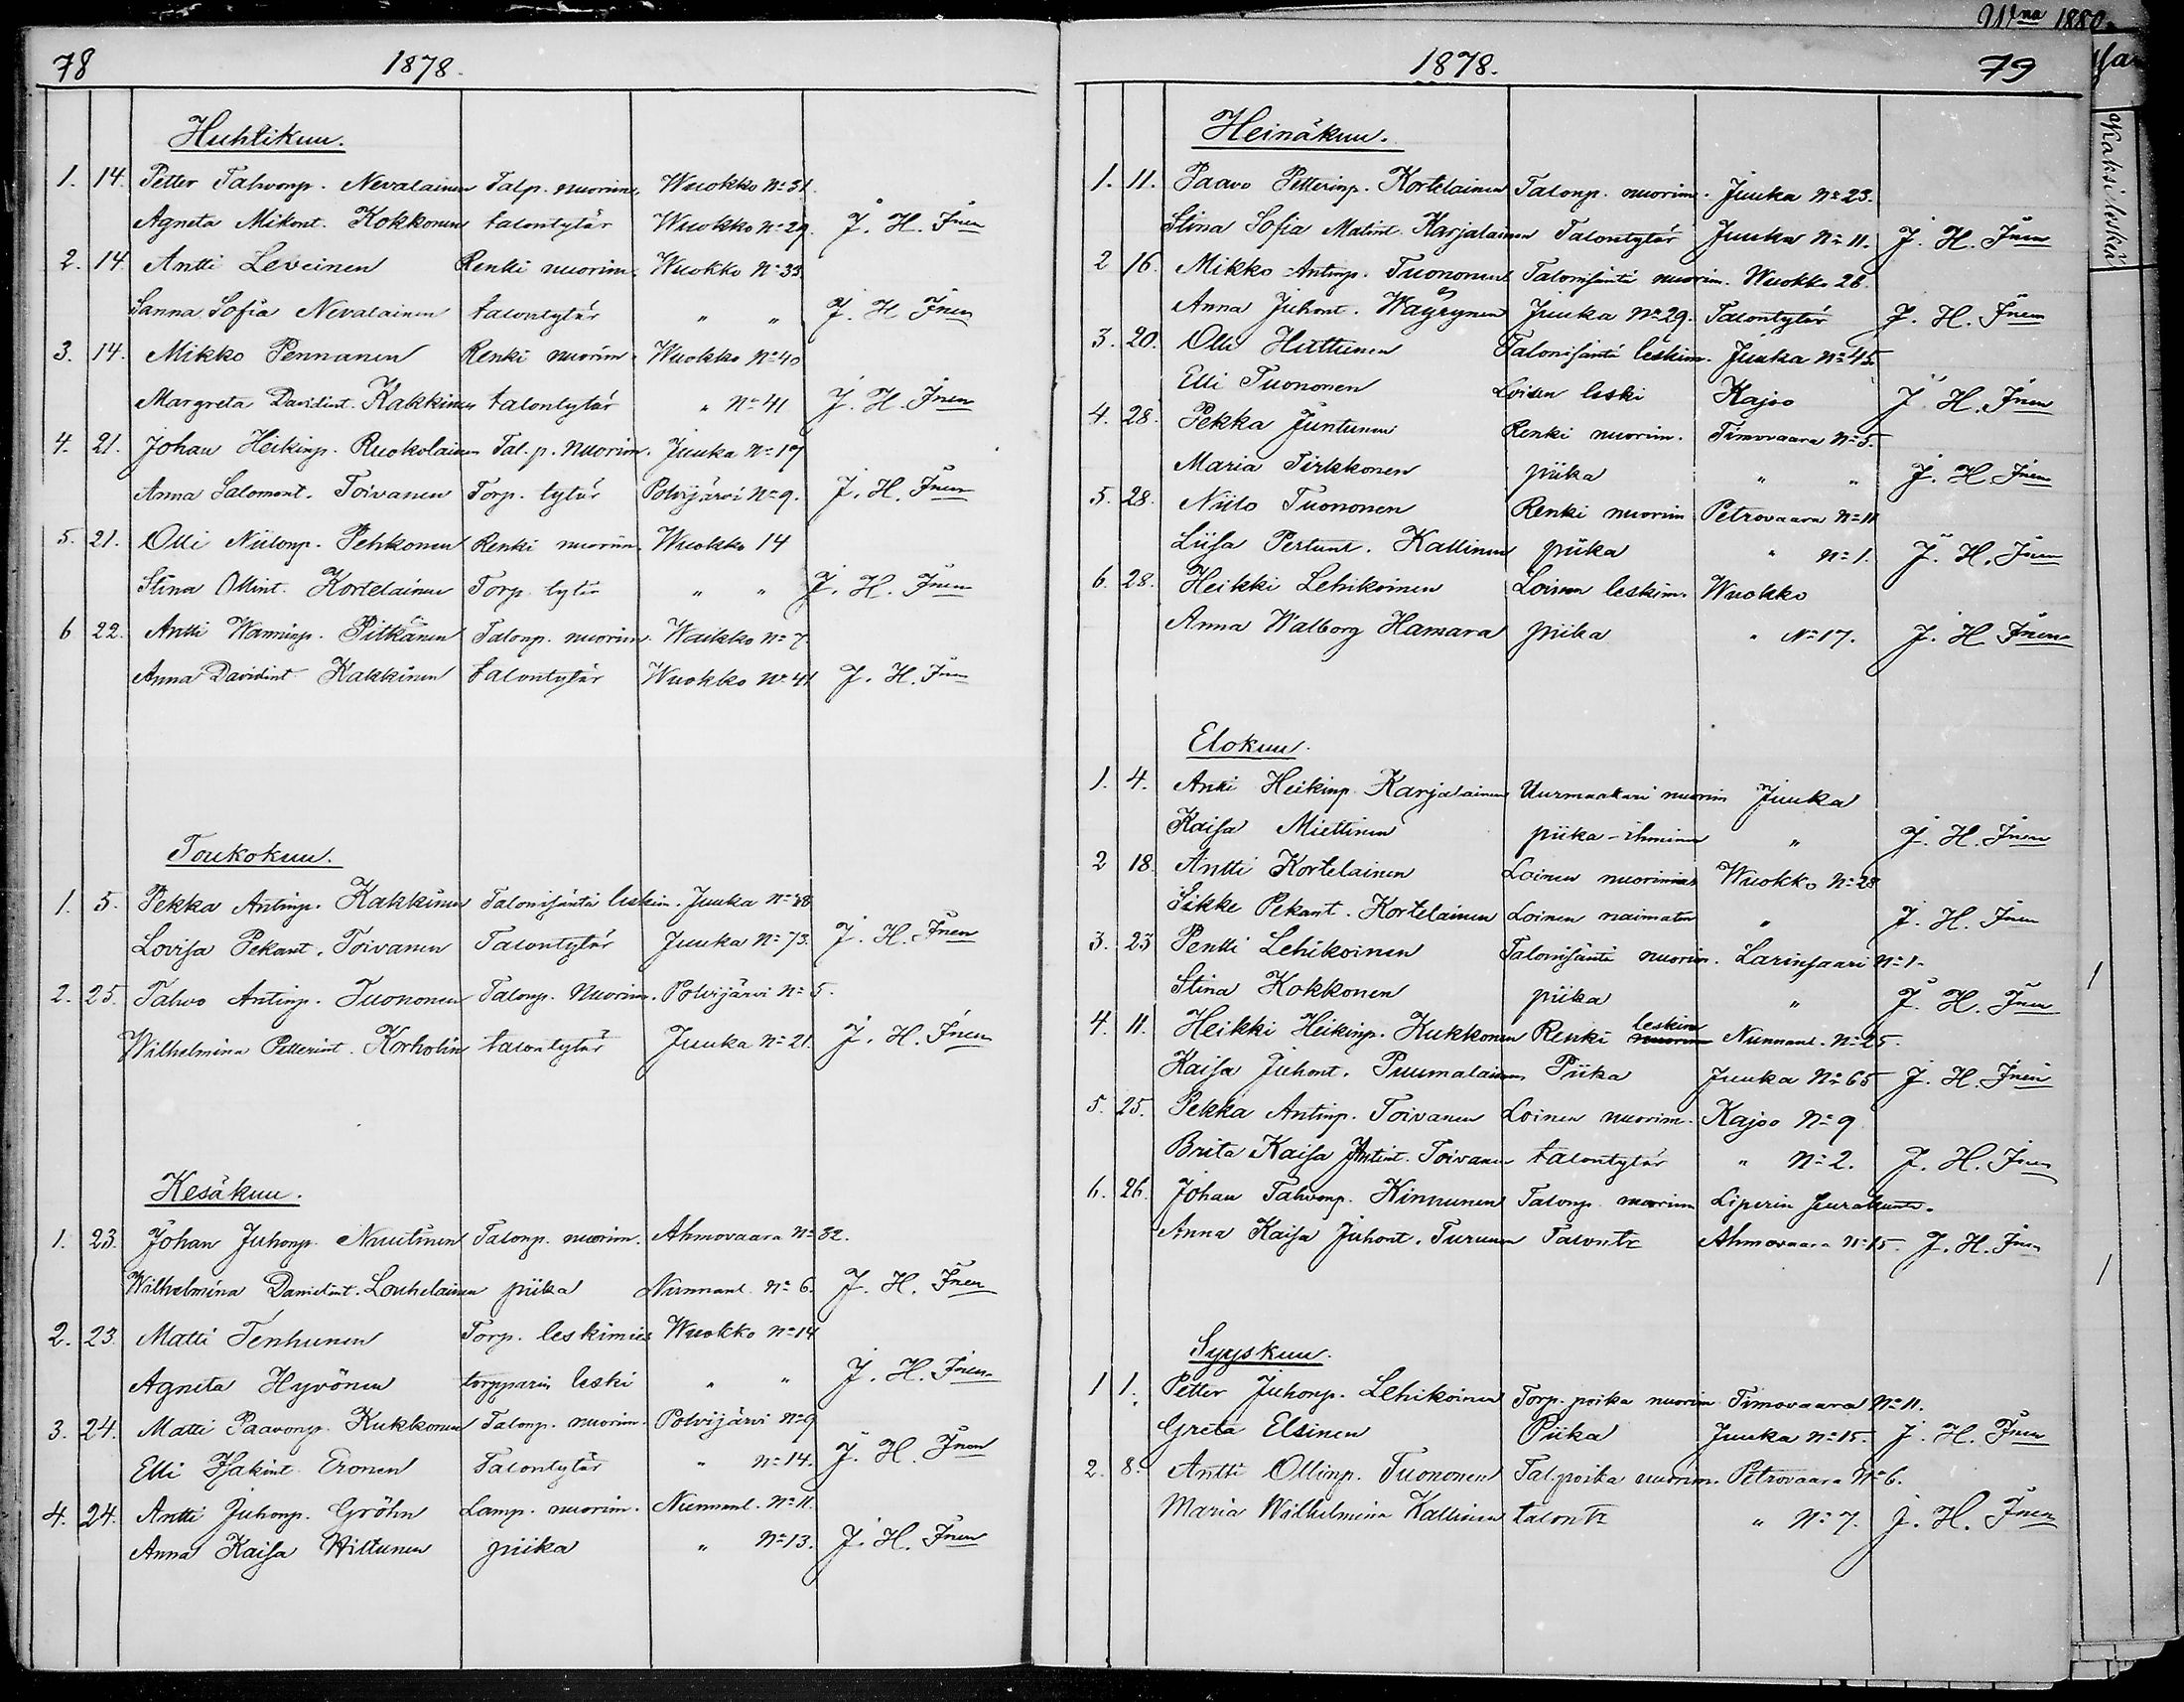 78 1878.
Huhtikuu.
1. 14. Petter Tahvonp. Nevalainen Talp. nuorim. Wuokko No 31.
Agneta Mikont. Kokkonen talontytär Wuokko No 29. J. H. Inen
2. 14. Antti Leveinen Renki nuorim. Wuokko No 33.
Sanna Sofia Nevalainen talontytär " " J. H. Inen
3. 14. Mikko Pennanen Renki nuorim. Wuokko No 40
Margreta Davidint. Kakkinen talontytär " No 41 J. H. Inen
4. 21. Johan Heikinp. Ruokolainen Tal. p. Nuorim. Juuka No 17
Anna Salomont. Toivanen Torp. tytär Polvijärvi No 9. J. H. Inen
5. 21. Olli Niilonp. Pehkonen Renki nuorim. Wuokko 14
Stina Ollint. Kortelainen Torp. tytär " " J. H. Inen
6 22. Antti Wanninp. Pitkänen Talonp. nuorim. Waikko No 7.
Anna Davidint. Kakkinen talontytär Wuokko No 41 J. H. Inen
Toukokuu.
1. 5. Pekka Antinp. Kakkinen Talonisäntä leskim. Juuka No 38
Lovisa Pekant. Toivanen Talontytär Juuka No 73. J. H. Inen
2. 25. Tahvo Antinp. Tuononen Talonp. Nuorim. Polvijärvi No 5.
Wilhelmina Petterint. Korholin talontytär Juuka No 21. J. H. Inen
Kesäkuu.
1. 23. Johan Juhonp. Nuutinen Talonp. nuorim. Ahmovaara No 32.
Wilhelmina Danielint. Louhelainen piika Nunnanl. No 6. J. H. Inen
2. 23. Matti Tenhunen Torp. leskimies Wuokko No 14
Agneta Hyvönen torpparin leski " " J. H. Inen
3. 24. Matti Paavonp. Kukkonen Talonp. nuorim. Polvijärvi No 9
Elli Isakint. Eronen Talontytär " No 14. J. H. Inen
4. 24. Antti Juhonp. Gröhn Lamp. nuorim. Nunnanl. No 11.
Anna Kaisa Hiltunen piika " No 13. J. H. Inen
1878. 79
Heinäkuu.
1. 11. Paavo Petterinp. Kortelainen Talonp. nuorim. Juuka No 23.
Stina Sofia Matint. Karjalainen Talontytär Juuka No 11. J. H. Inen
2 16. Mikko Antinp. Tuononen Talonisäntä nuorim. Wuokko 26.
Anna Juhont. Wäyrynen Juuka No 29. Talontytär J. H. Inen
3. 20. Olli Huttunen Talonisäntä leskim. Juuka No 45
Elli Tuononen Loisen leski Kajoo J. H. Inen
4. 28. Pekka Juntunen Renki nuorim. Timovaara No 5.
Maria Tirkkonen piika " " J. H. Inen
5. 28. Niilo Tuononen Renki nuorim Petrovaara No 11
Liisa Pertunt. Kallinen piika " No 1. J. H. Inen
6. 28. Heikki Lehikoinen Loinen leskim. Wuokko
Anna Walborg Hamara piika " No 17. J. H. Inen
Elokuu.
1. 4. Antti Heikinp. Karjalainen Uurmaakari nuorim Juuka
Kaisa Miettinen piika-ihminen " J. H. Inen
2 18. Antti Kortelainen Loinen nuorimies Wuokko No 28
Sikke Pekant. Kortelainen Loinen naimaton " J. H. Inen
3. 23 Pentti Lehikoinen Talonisäntä nuorim. Larinsaari No 1.
Stina Kokkonen piika " J. H. Inen
4. 11. Heikki Heikinp. Kukkonen Renki nuorim leskim Nunnanl. No 25.
Kaisa Juhont. Puumalainen Piika Juuka No 65 J. H. Inen
5. 25. Pekka Antinp. Toivanen Loinen nuorim. Kajoo No 9
Brita Kaisa Antint. Toivanen talontytär " No 2. J. H. Inen
6. 26. Johan Tahvonp. Kinnunen Talonp. nuorim Liperin seurakunta.
Anna Kaisa Juhont. Turunen Talontr Ahmovaara No 15. J. H. Inen
Syyskuu.
1 1. Petter Juhonp. Lehikoinen Torp. poika nuorim Timovaara No 11.
Greta Elsinen Piika Juuka No 15. J. H. Inen
2. 8. Antti Ollinp. Tuononen Tal.poika nuorim. Petrovaara No 6.
Maria Wilhelmina Kallinen talontr " No 7. J. H. Inen
1880.
Kaksi leskeä